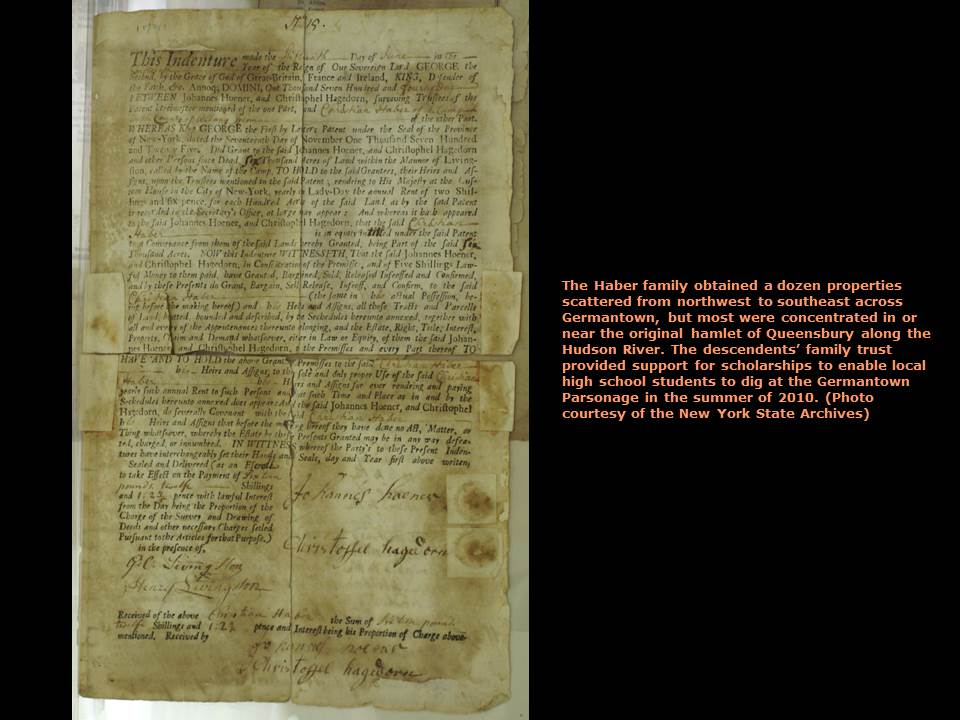 No 15.
This Indenture made the Day of June in the
Year of the Reign of Our Sovereign Lord GEORGE the
Second, by the Grace of God of Great-Britain, France and Ireland, KING, Defender of
the Faith, &c. Annoq; DOMINI, One Thousand Seven Hundred and
BETWEEN Johannes Hoener, and Christophel Hagedorn, surviving Trustees of the
Patent hereinafter mentioned of the one Part, and Christian Haber
of the other Part.
WHEREAS King GEORGE the First by Letters Patent under the Seal of the Province
of New-York, dated the Seventeenth Day of November One Thousand Seven Hundred
and Twenty Five, Did Grant to the said Johannes Hoener, and Christophel Hagedorn
and other Persons since Dead, Six Thousand Acres of Land within the Mannor of Living-
ston, called by the Name of the Camp, TO HOLD to the said Grantees, their Heirs and As-
signs, upon the Trustees mentioned in the said Patent, rendring to His Majesty at the Cus-
tom House in the City of New-York, yearly on Lady-Day the annual Rent of two Shil-
lings and six pence, for each Hundred Acres of the said Land, as by the said Patent
is recorded in the Secretary's Office, at large may appear: And whereas it hath appeared
to the said Johannes Hoener, and Christophel Hagedorn, that the said Christian
Haber is in equity intitled under the said Patent
to a Conveyance from them of the said Lands hereby Granted, being Part of the said Six
Thousand Acres. NOW this Indenture WITNESSETH, That the said Johannes Hoener,
and Christophel Hagedorn, In Consideration of the Premisses, and of Five Shillings Law-
ful Money to them paid, have Granted, Bargained, Sold, Released Infeoffed and Confirmed,
and by these Presents do Grant, Bargain, Sell, Release, Infeoff, and Confirm, to the said
Christian Haber (the same in his actual Possession, be-
ing before the making hereof) and his Heirs and Assigns, all those Tracts and Parcells
of Land, butted, bounded and described, by the Seckedules hereunto annexed, together with
all and every of the Appertenences thereunto belonging, and the Estate, Right, Title, Interest,
Property, Claim and Demand whatsoever, either in Law or Equity, of them the said Johan-
nes Hoener, and Christophel Hagedorn, of the Premisses and every Part thereof TO
HAVE AND TO HOLD the above Granted Premisses to the said Christian Haber
his Heirs and Assigns, to the sole and only proper Use of the said Christian
Haber his Heirs and Assigns for ever rendring and paying
yearly such annual Rent to such Person and at such Time and Place as in and by the
Seckedules hereunto annexed does appear, and the said Johannes Hoener, and Christophel
Hagedorn, do severally Covenant with the said Christian Haber
his Heirs and Assigns that before the making hereof they have done no Act, Matter, or
Thing whatsoever, whereby the Estate by these Presents Granted may be in any way defea-
ted, charged, or incumbred. IN WITNESS whereof the Party's to these Present Inden-
tures have interchangeably set their Hands and Seals, day and Year first above writen,
Sealed and Delivered (as an Escroll
to take Effect on the Payment of Sixteen
pounds twelve Shillings
and 1:2¾ pence with lawful Interest
from the Day being the Proportion of the
Charge of the Survey and Drawing of
Deeds and other necessary Charges setled
Pursuant to the Articles for that Purpose.)
in the presence of,
Johannes Hoener
Christoffel hagedorn
Livingston
Henry Livingston
Received of the above Christian Haber the Sum of Sixteen pounds
twelve Shillings and pence and Interest being his Proportion of Charge above
mentioned. Received by
Johannes hoener
Christoffel hagedorn
The Haber family obtained a dozen properties
scattered from northwest to southeast across
Germantown, but most were concentrated in or
near the original hamlet of Queensbury along the
Hudson River. The descendents' family trust
provided support for scholarships to enable local
high school students to dig at the Germantown
Parsonage in the summer of 2010. (Photo
courtesy of the New York State Archives)